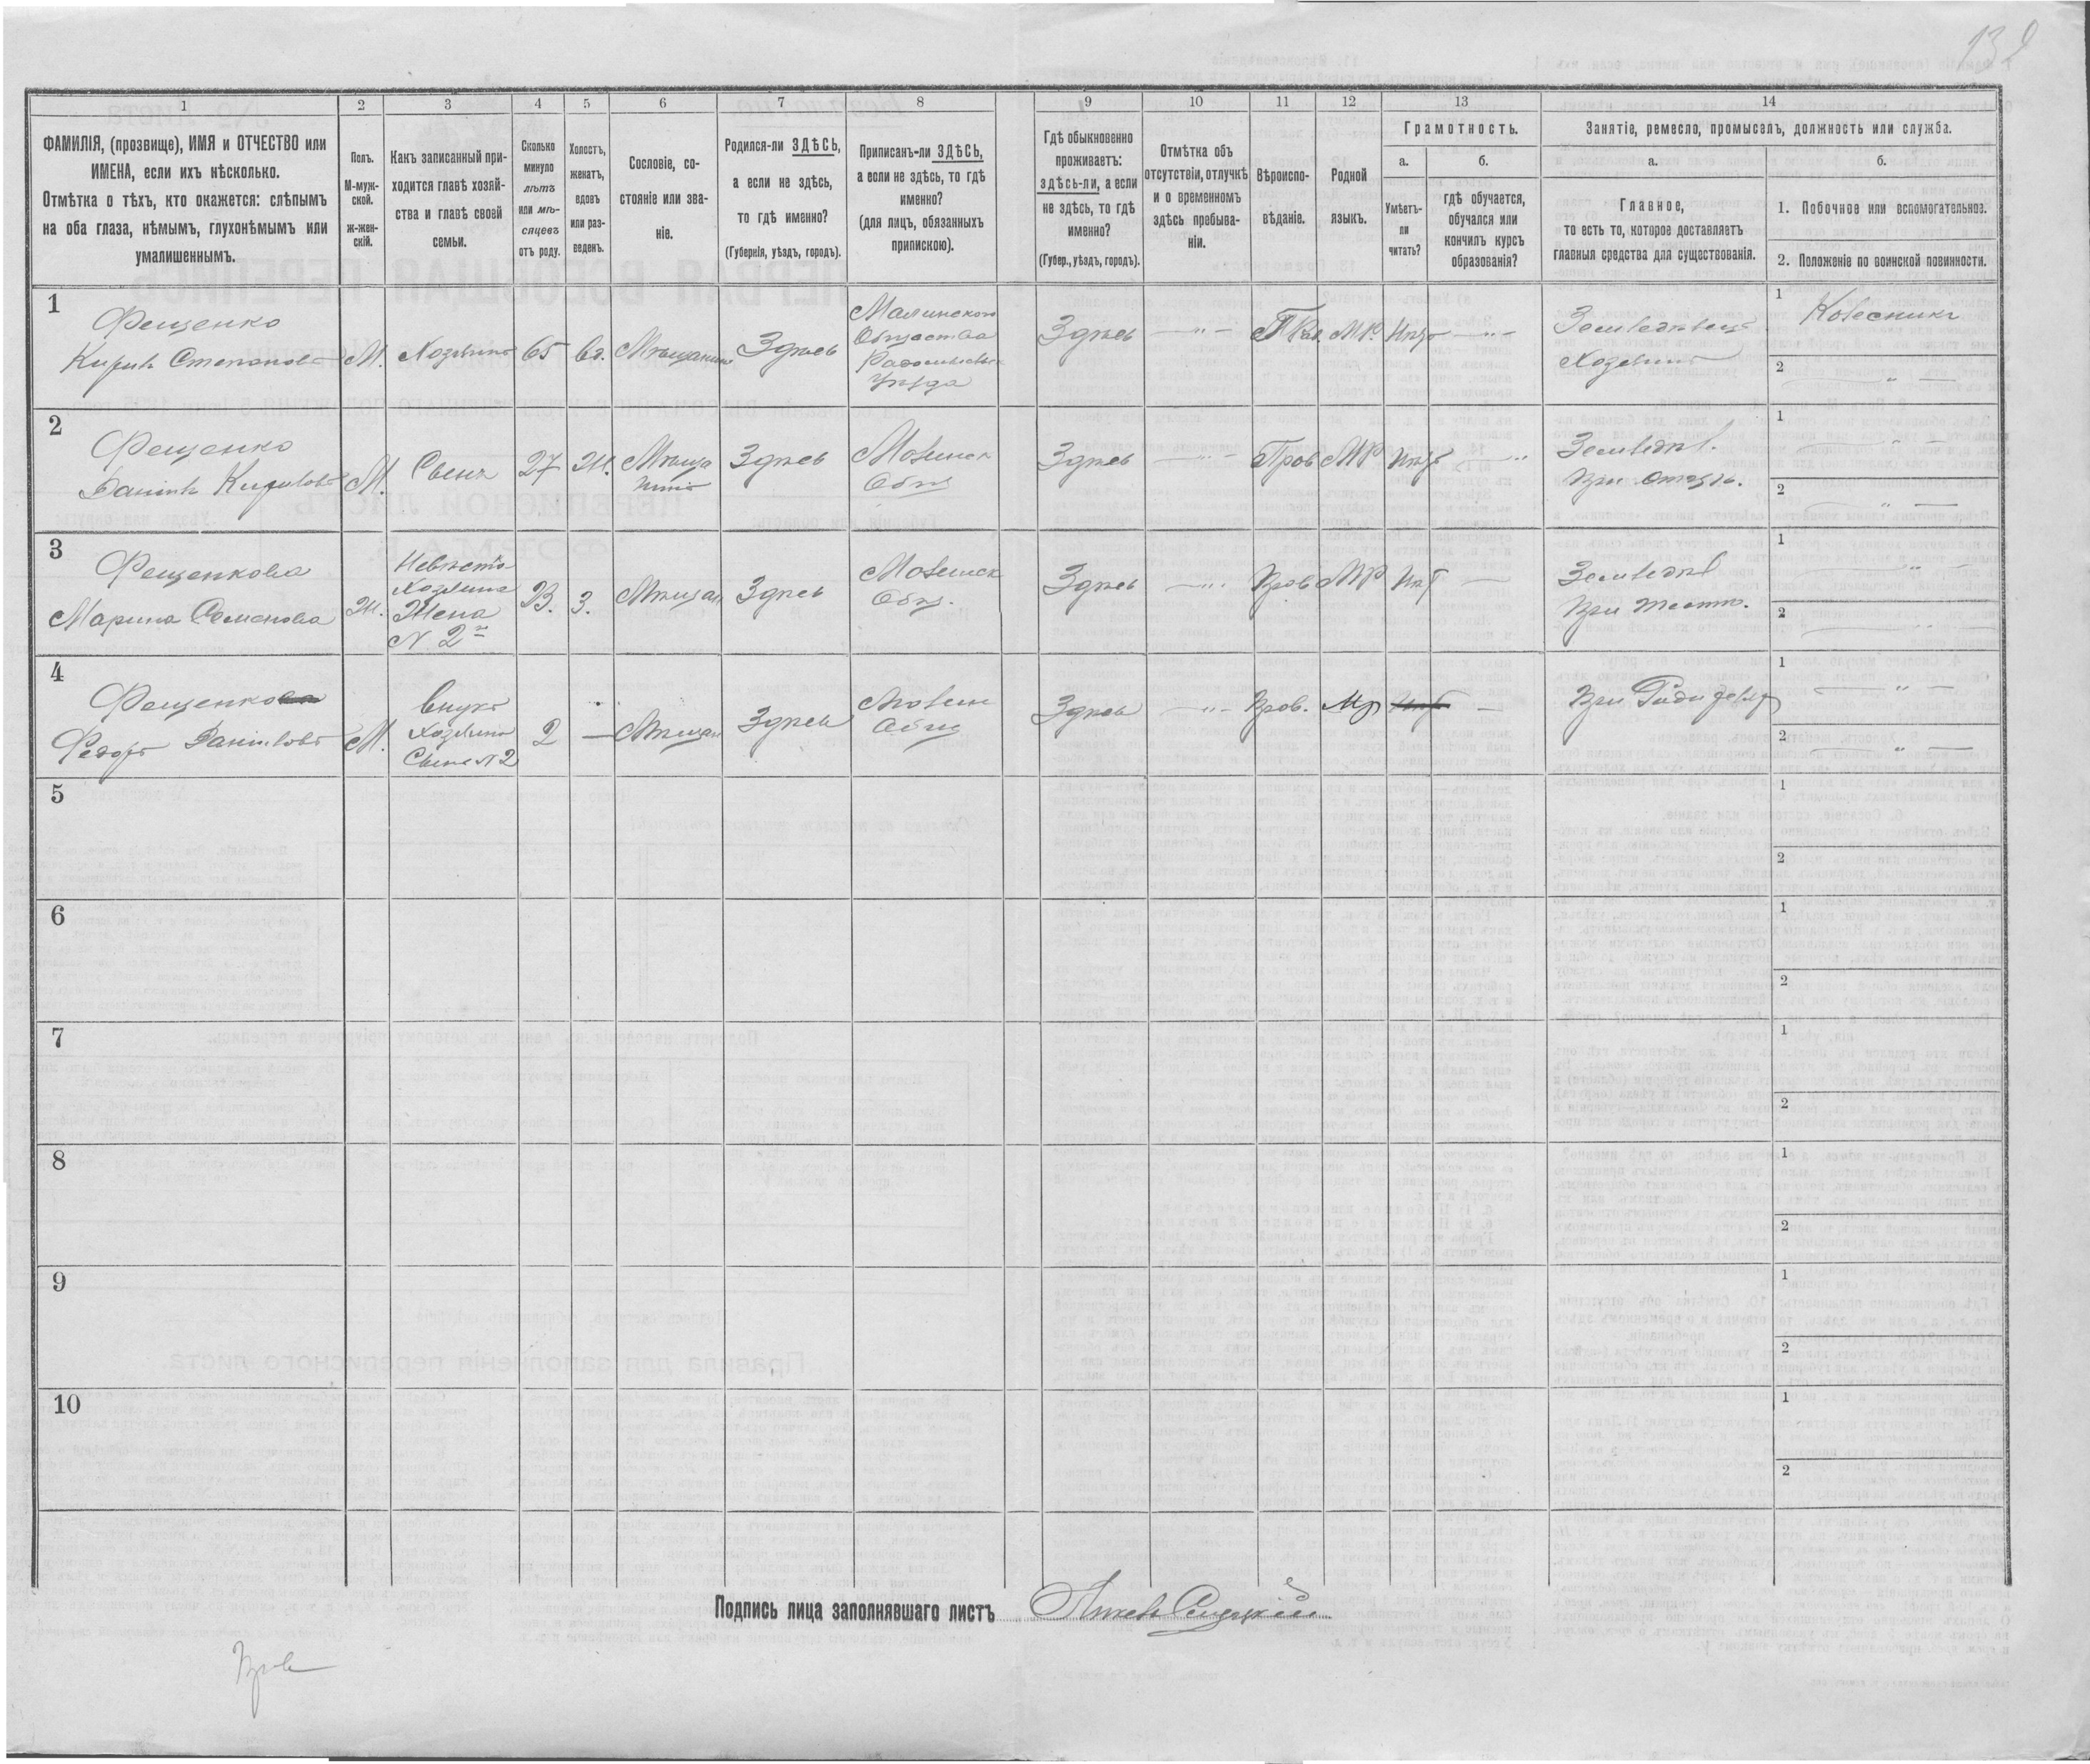 132
1 2 3 4 5 6 7 8 9 10 11 12 13 14
ФАМИЛІЯ, (прозвище), ИМЯ и ОТЧЕСТВО или
ИМЕНА, если ихъ нѣсколько.
Отмѣтка о тѣхъ, кто окажется: слѣпымъ
на оба глаза, нѣмымъ, глухонѣмымъ или
умалишеннымъ.
Полъ.
М-муж-
ской.
ж-жен-
скій.
Какъ записанный при-
ходится главѣ хозяй-
ства и главѣ своей
семьи.
Сколько
минуло
лѣтъ
или мѣ-
сяцевъ
отъ роду.
Холостъ,
женатъ,
вдовъ
или раз-
веденъ.
Сословіе, со-
стояніе или зва-
ніе.
Родился-ли ЗДѢСЬ,
а если не здѣсь,
то гдѣ именно?
(Губернія, уѣздъ, городъ).
Приписанъ-ли ЗДѢСЬ,
а если не здѣсь, то гдѣ
именно?
(для лицъ, обязанныхъ
припискою).
Гдѣ обыкновенно
проживаетъ:
здѣсь-ли, а если
не здѣсь, то гдѣ
именно?
(Губер., уѣздъ, городъ).
Отмѣтка объ
отсутствіи, отлучкѣ
и о временномъ
здѣсь пребыва-
ніи.
Вѣроиспо-
вѣданіе.
Родной
языкъ.
Грамотность.
а.
Умѣетъ-
ли
читать?
б.
гдѣ обучается,
обучался или
кончилъ курсъ
образованія?
Занятіе, ремесло, промыселъ, должность или служба.
а.
Главное,
то есть то, которое доставляетъ
главныя средства для существованія.
б.
1. Побочное или вспомогательное.
2. Положеніе по воинской повинности.
1
Фещенко
Кирилъ Степановъ
М.
Хозяинъ
65
вд.
Мѣщанинъ
Здѣсь
Малинского
Общества
Радомысльск
Уѣзда
Здѣсь
М.Р.
Нѣтъ
Земледѣлецъ
Хозяинъ
1
Колесникъ
2
2
Фещенко
Данилъ Кириловъ
М.
Сынъ
27
Ж.
Мѣща
нинъ
Здѣсь
Малинск
Общ
Здѣсь
Прав
МР
Нѣтъ
Земледѣл.
При отцѣ.
1
2
3
Фещенкова
Марина Семенова
Ж.
Невѣстк
Хозяина
Жена
N 2й
23.
З.
Мѣщан
Здѣсь
Малинск
Общ.
Здѣсь
Прав
МР
Нѣт
Земледѣл
При тести.
1
2
4
Фещенкова
Федоръ Даниловъ
М.
Внукъ
Хозяина
Сынъ N 2
2
Мѣщан
Здѣсь
Малин
Общ
Здѣсь
Прав.
Мр
Нѣт
При
1
2
5
1
2
6
1
2
7
1
2
8
1
2
9
1
2
10
1
2
Подпись лица заполнявшаго листъ